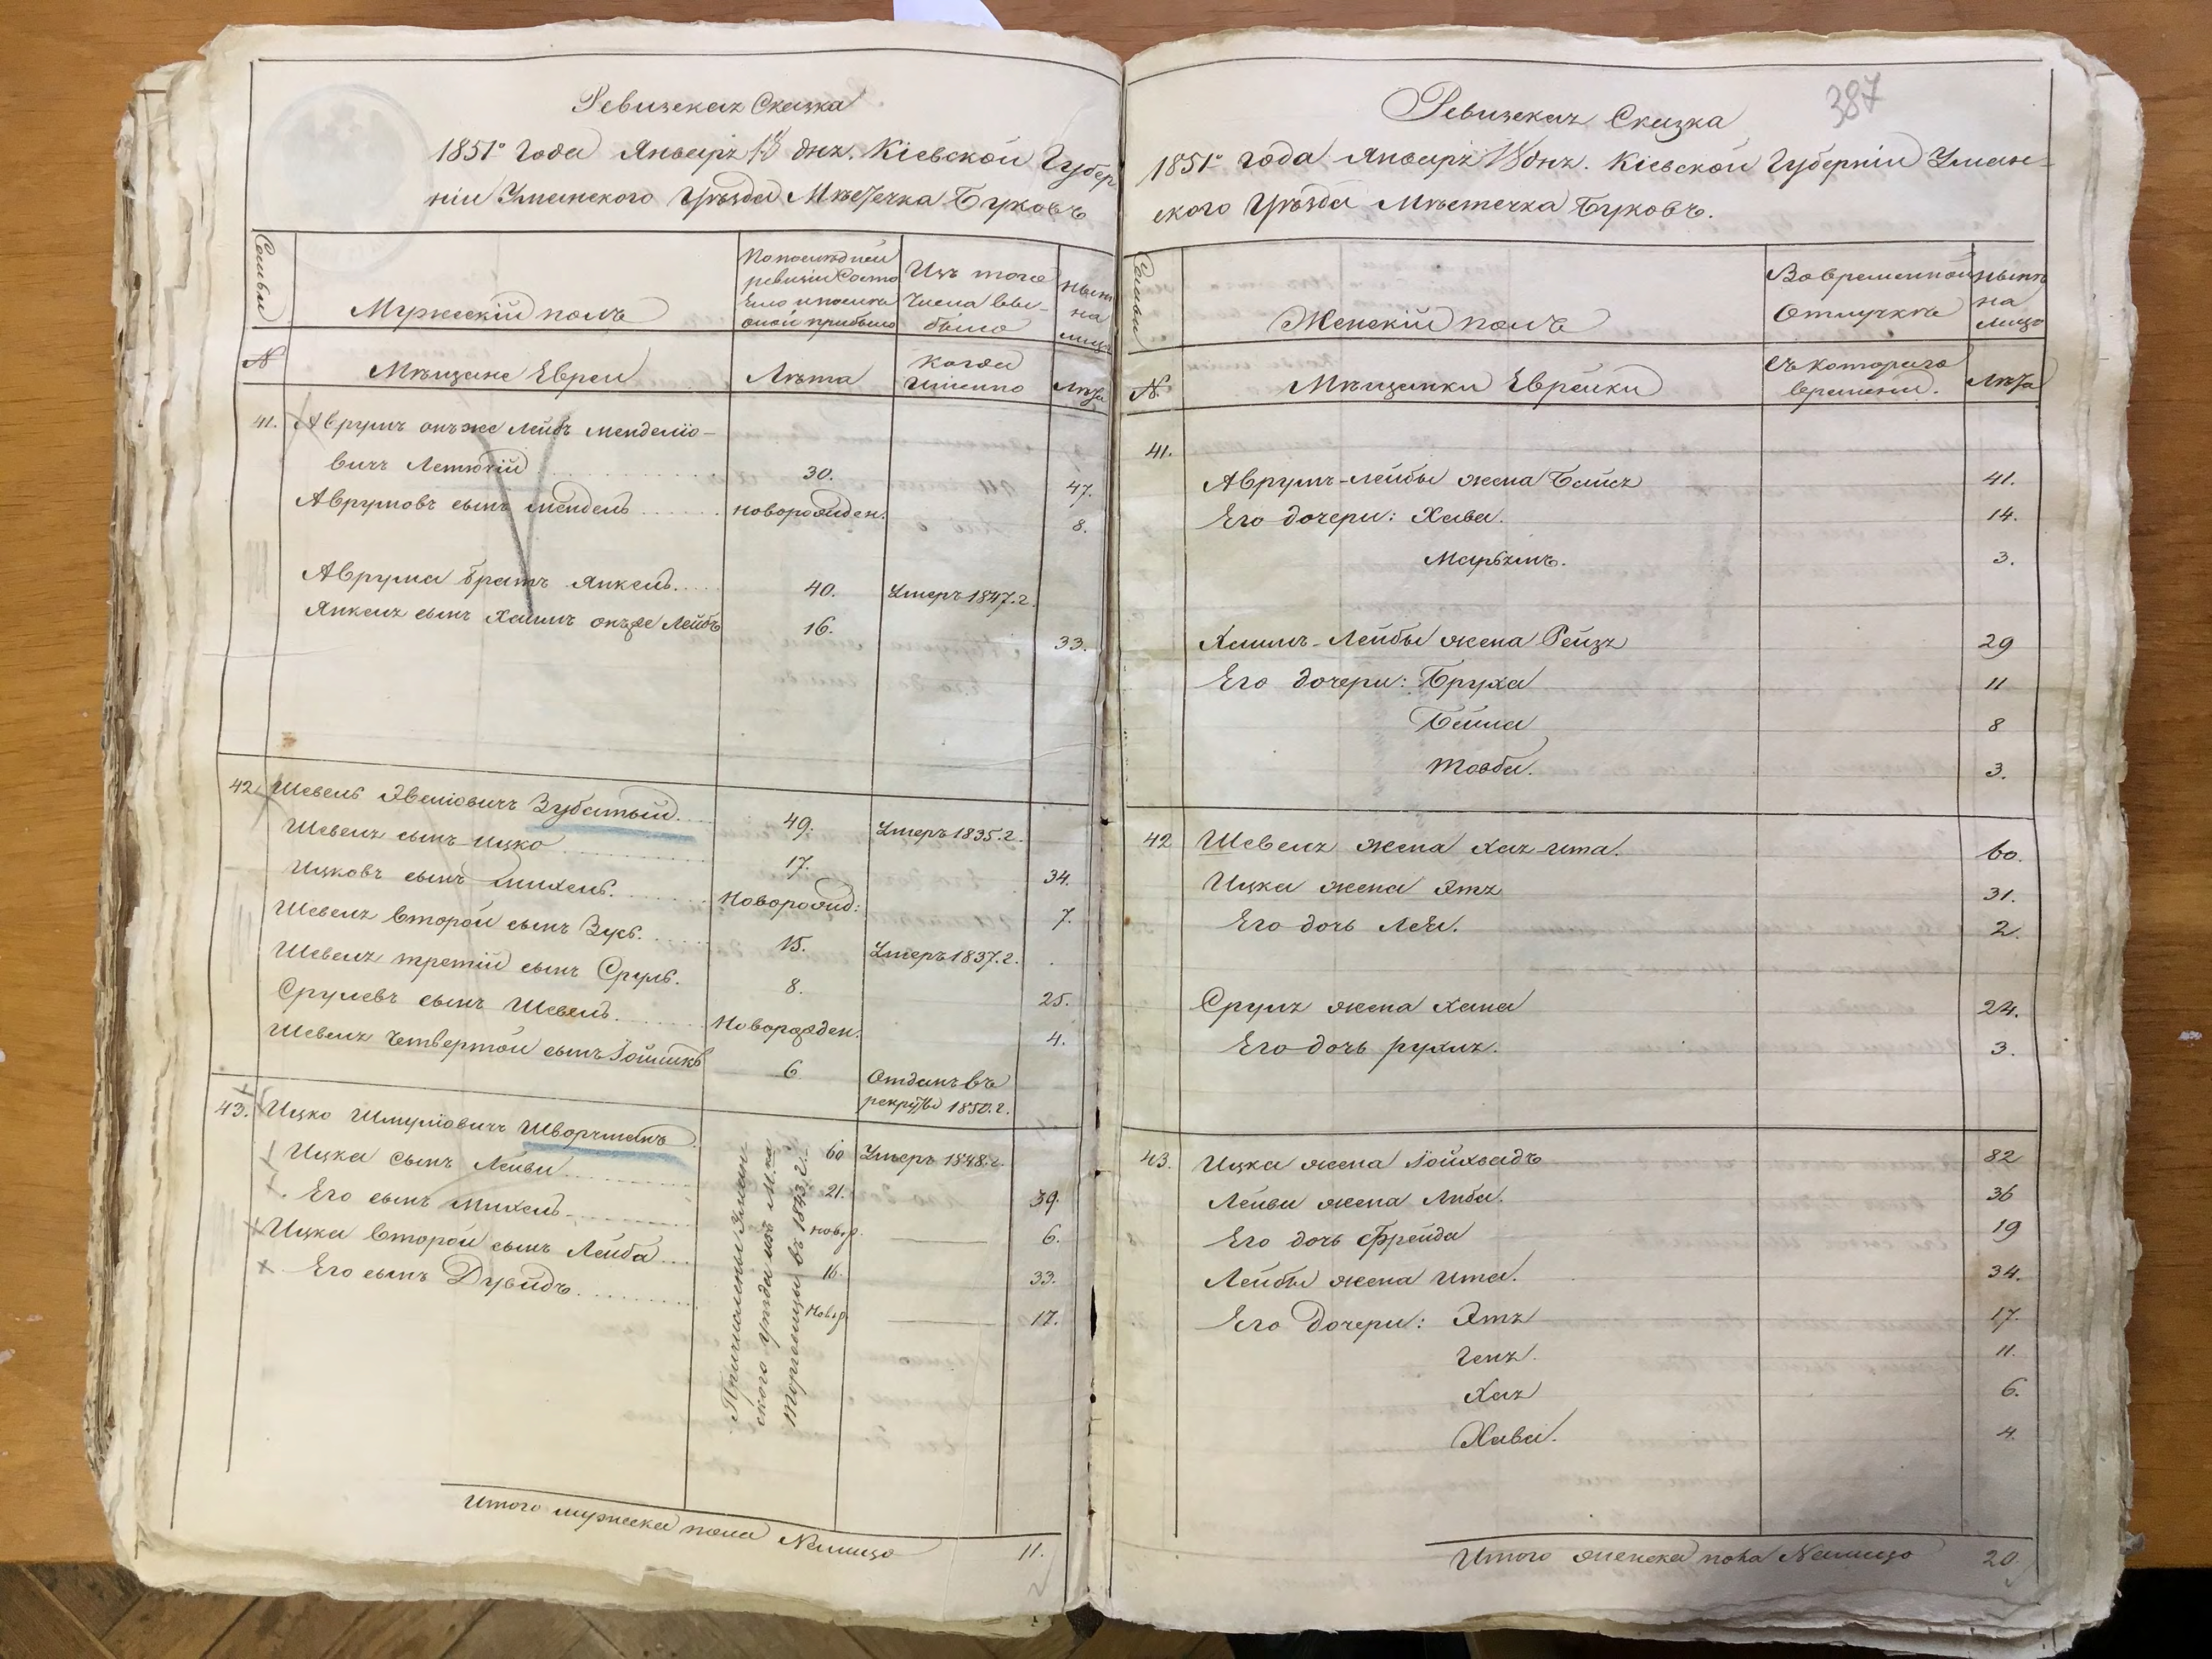 Ревизская Сказка
1851го года Января 18 дня. Кіевской Губер
ніи Уманского Уѣзда Мѣстечка Буковъ
Семьи
Мужескій полъ
По послѣдней
ревизіи Состо
яло и послѣ
оной прибыло
Изъ того
числа вы-
было
нынѣ
на
лицо
№
Мѣщане Евреи
Лѣта
когда
именно
Лѣта
41. Аврумъ онъ же Лейбъ Менделіо-
вичъ Летючій 30. 47.
Аврумовъ сынъ Мендель новорожден. 8.
Аврума братъ Янкель. 40. Умеръ 1847. г.
Янкеля сынъ Хаимъ онъ же Лейбъ 16. 33.
42. Шевель Эвеліовичъ Зубатый. 49. Умеръ 1835. г.
Шевеля сынъ Ицко 17. 34.
Ицковъ сынъ Михель. Новорожд: 7.
Шевеля второй сынъ Зусь. 15. Умеръ 1837. г.
Шевеля третій сынъ Сруль. 8. 25.
Срулевъ сынъ Шевель. Новорожден. 4.
Шевеля четвертой сынъ Іойшикъ 6 Отданъ въ
рекруты 1850. г.
43. Ицко Шмуліовичъ Шворчманъ 60 Умеръ 1848. г.
Ицка сынъ Лейви 21. 39.
Его сынъ Михель новор. 6.
Ицка второй сынъ Лейба 16. 33.
Его сынъ Дувидъ. Новор. 17.
Причислены Уман
ского уѣзда изъ М:ка
Торговицы въ 1843. г.
Итого мужеска пола Налицо 11.
387
Ревизская Сказка
1851го года Января 18 дня. Кіевской Губерніи Уман-
ского Уѣзда Мѣстечка Буковъ.
Семьи
Женскій полъ
Во временной
Отлучкѣ
нынѣ
на
лицо
№.
Мѣщанки Еврейки
Съ котораго
времени.
Лѣта
41.
Аврумъ-Лейбы жена Бася 41.
Его дочери: Хава. 14.
Марьямъ. 3.
Хаимъ-Лейбы жена Рейзя 29
Его дочери: Бруха 11
Бейла 8
Товба. 3.
42 Шевеля жена Хая-Ита. 60.
Ицка жена Этя 31.
Его дочь Лея. 2.
Сруля жена Хана 24.
Его дочь Рухля. 3.
43. Ицка жена Іойхвадъ 82
Лейви жена Либа. 36
Его дочь Фрейда 19
Лейбы жена Ита. 34.
Его Дочери: Этя 17.
Геня. 11.
Хая 6.
Хава. 4.
Итого женска пола Налицо 20.